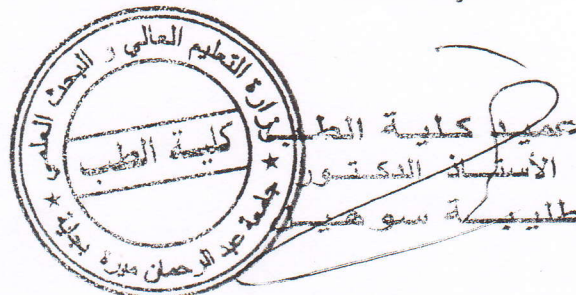 وزارة التعليم العالي و البحث العلمي
كلية الطب
★ جامعة عبد الرحمان ميرة بجاية ★
عميد كلية الطب
الأستاذ الدكتور
طليبة سوهيل